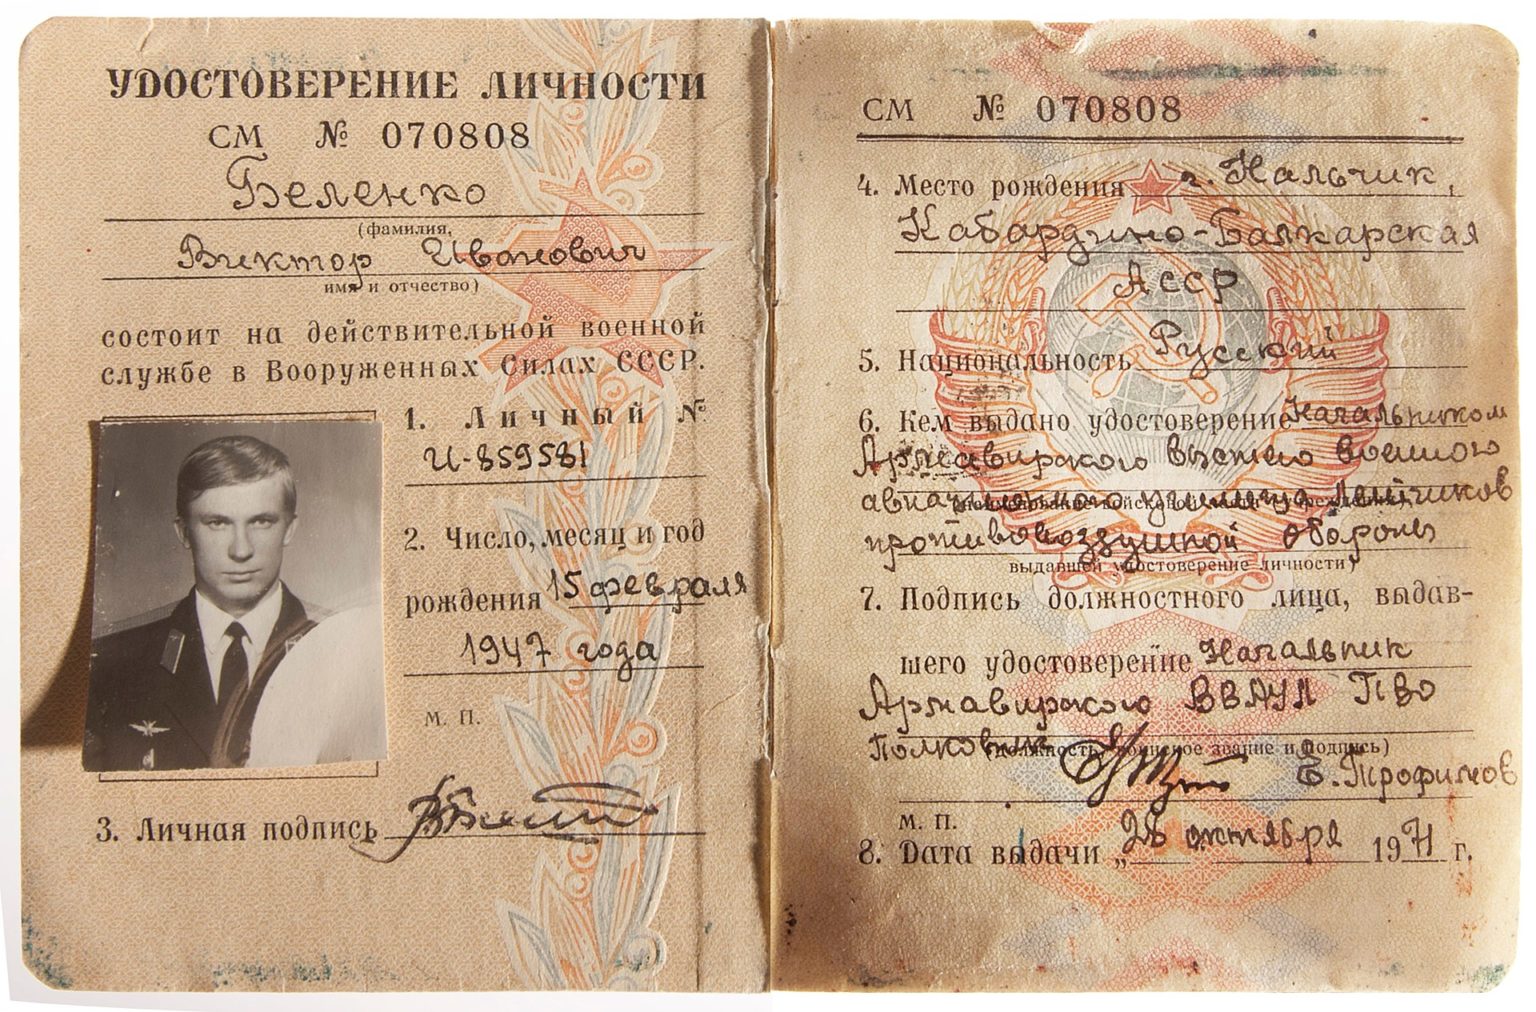 УДОСТОВЕРЕНИЕ ЛИЧНОСТИ
СМ № 070808
Беленко
(фамилия,
Виктор Иванович
имя и отчество)
состоит на действительной военной
службе в Вооруженных Силах СССР.
1. Личный №
И-859581
2. Число, месяц и год
рождения 15 февраля
1947 года
М. П.
3. Личная подпись
СМ № 070808
4. Место рождения г. Нальчик,
Кабардино-Балкарская
АССР
5. Национальность Русский
6. Кем выдано удостоверение Начальником
Армавирского высшего военного
авиационного училища летчиков
(наименование войсковой части, учреждения,
противовоздушной обороны
выдавшей удостоверение личности)
7. Подпись должностного лица, выдав-
шего удостоверение Начальник
Армавирского ВВАУЛ ПВО
Полковник (должность, воинское звание и подпись)
Е. Трофимов
М. П.
8. Дата выдачи „28 октября 1971 г.